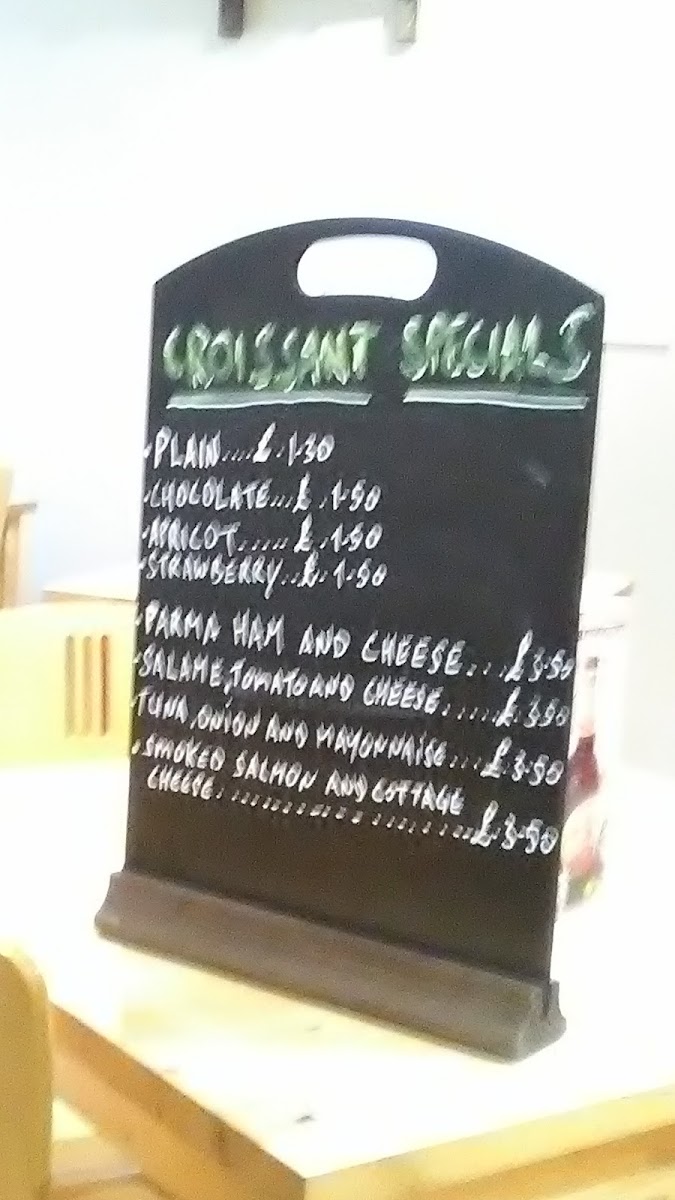 CROISSANT SPECIALS
·PLAIN....£.1.30
·CHOCOLATE...£.1.50
·APRICOT.....£.1.50
·STRAWBERRY..£.1.50
·PARMA HAM AND CHEESE...£3.50
·SALAME,TOMATO AND CHEESE.....£.3.50
·TUNA,ONION AND MAYONNAISE...£.3.50
·SMOKED SALMON AND COTTAGE
CHEESE........................£.3.50